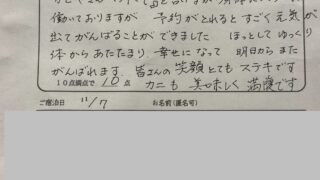 働いておりますが 予約がとれると すごく元気が
出てがんばることができました ほっとしてゆっくり
体からあたたまり 幸せになって 明日からまた
がんばれます。皆さんの笑顔とてもステキです
10点満点で 10 点 カニも美味しく満腹です
ご宿泊日 11/7 お名前(匿名可)